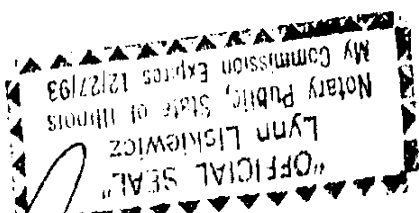 "OFFICIAL SEAL"
Lynn Liskiewicz
Notary Public, State of Illinois
My Commission Expires 12/27/93